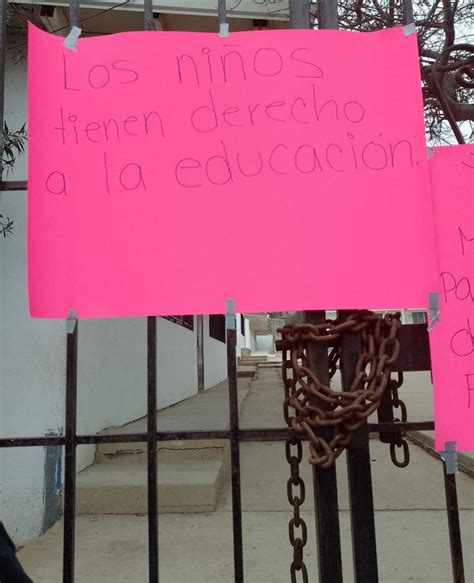 Los niños
tienen derecho
a la educación.
M
Pa
d
F